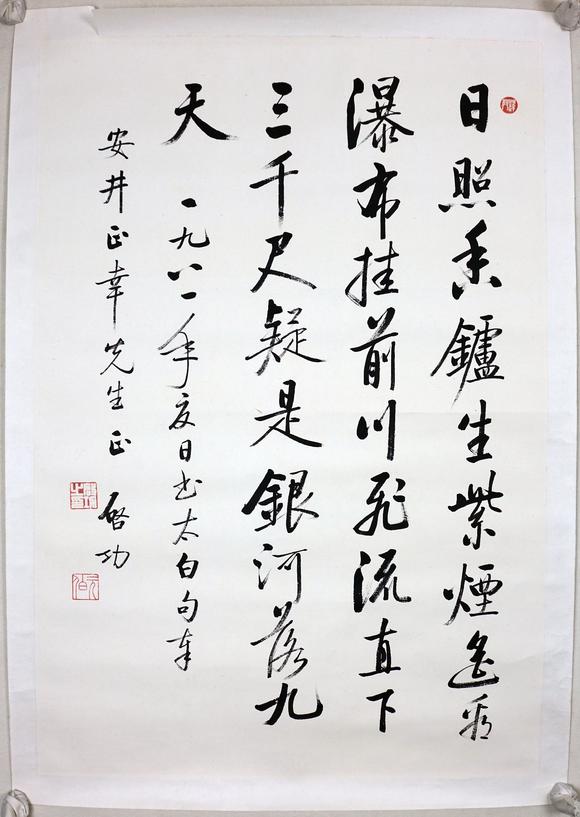 日照香鑪生紫煙遙看
瀑布挂前川飛流直下
三千尺疑是銀河落九
天 一九八一年夏日书太白句奉
安井正幸先生正 啓功